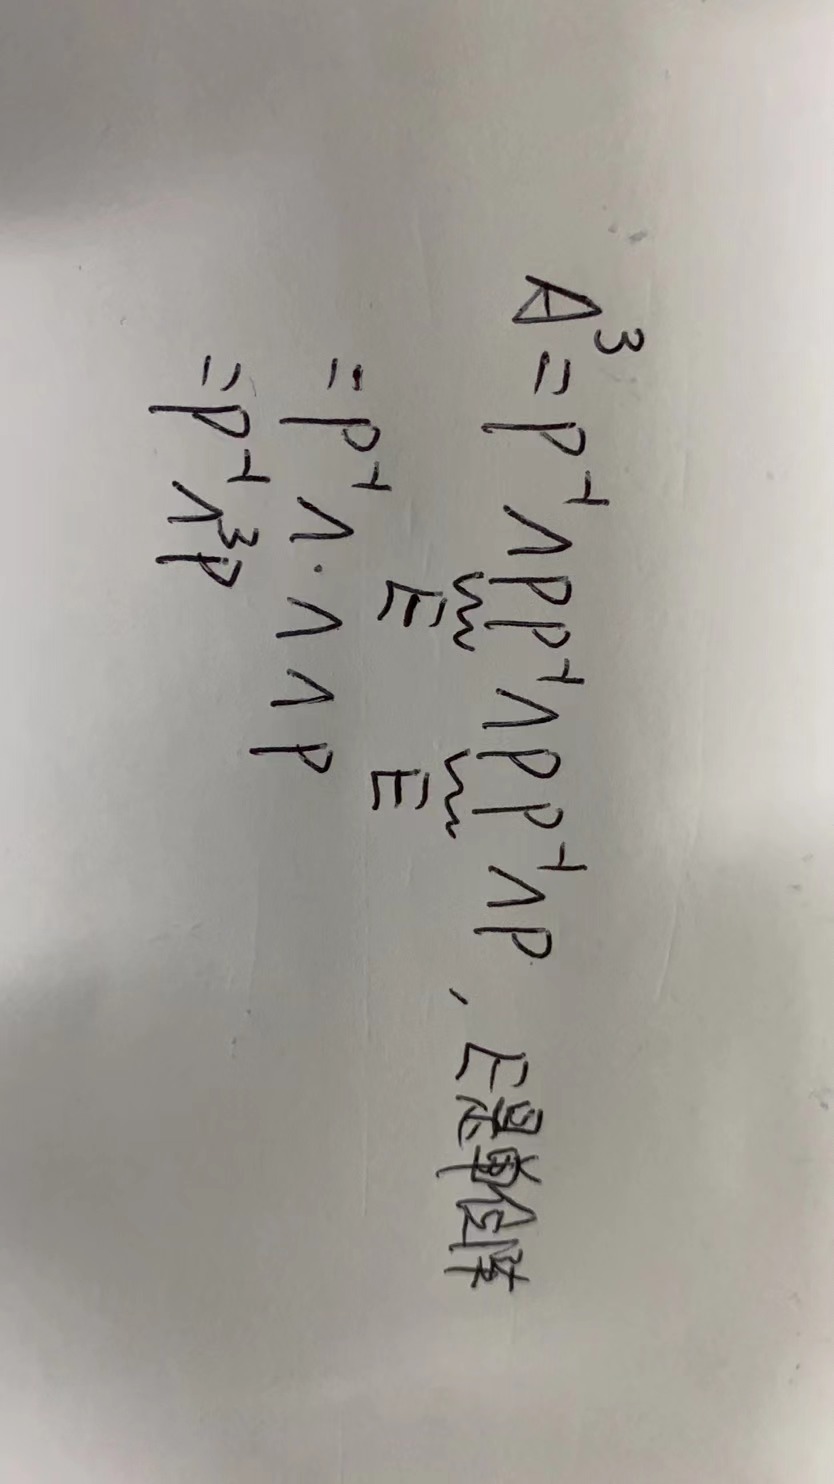 A³=P⁻¹ΛPP⁻¹ΛPP⁻¹ΛP，E是单位阵
E E
=P⁻¹Λ·ΛΛP
=P⁻¹Λ³P